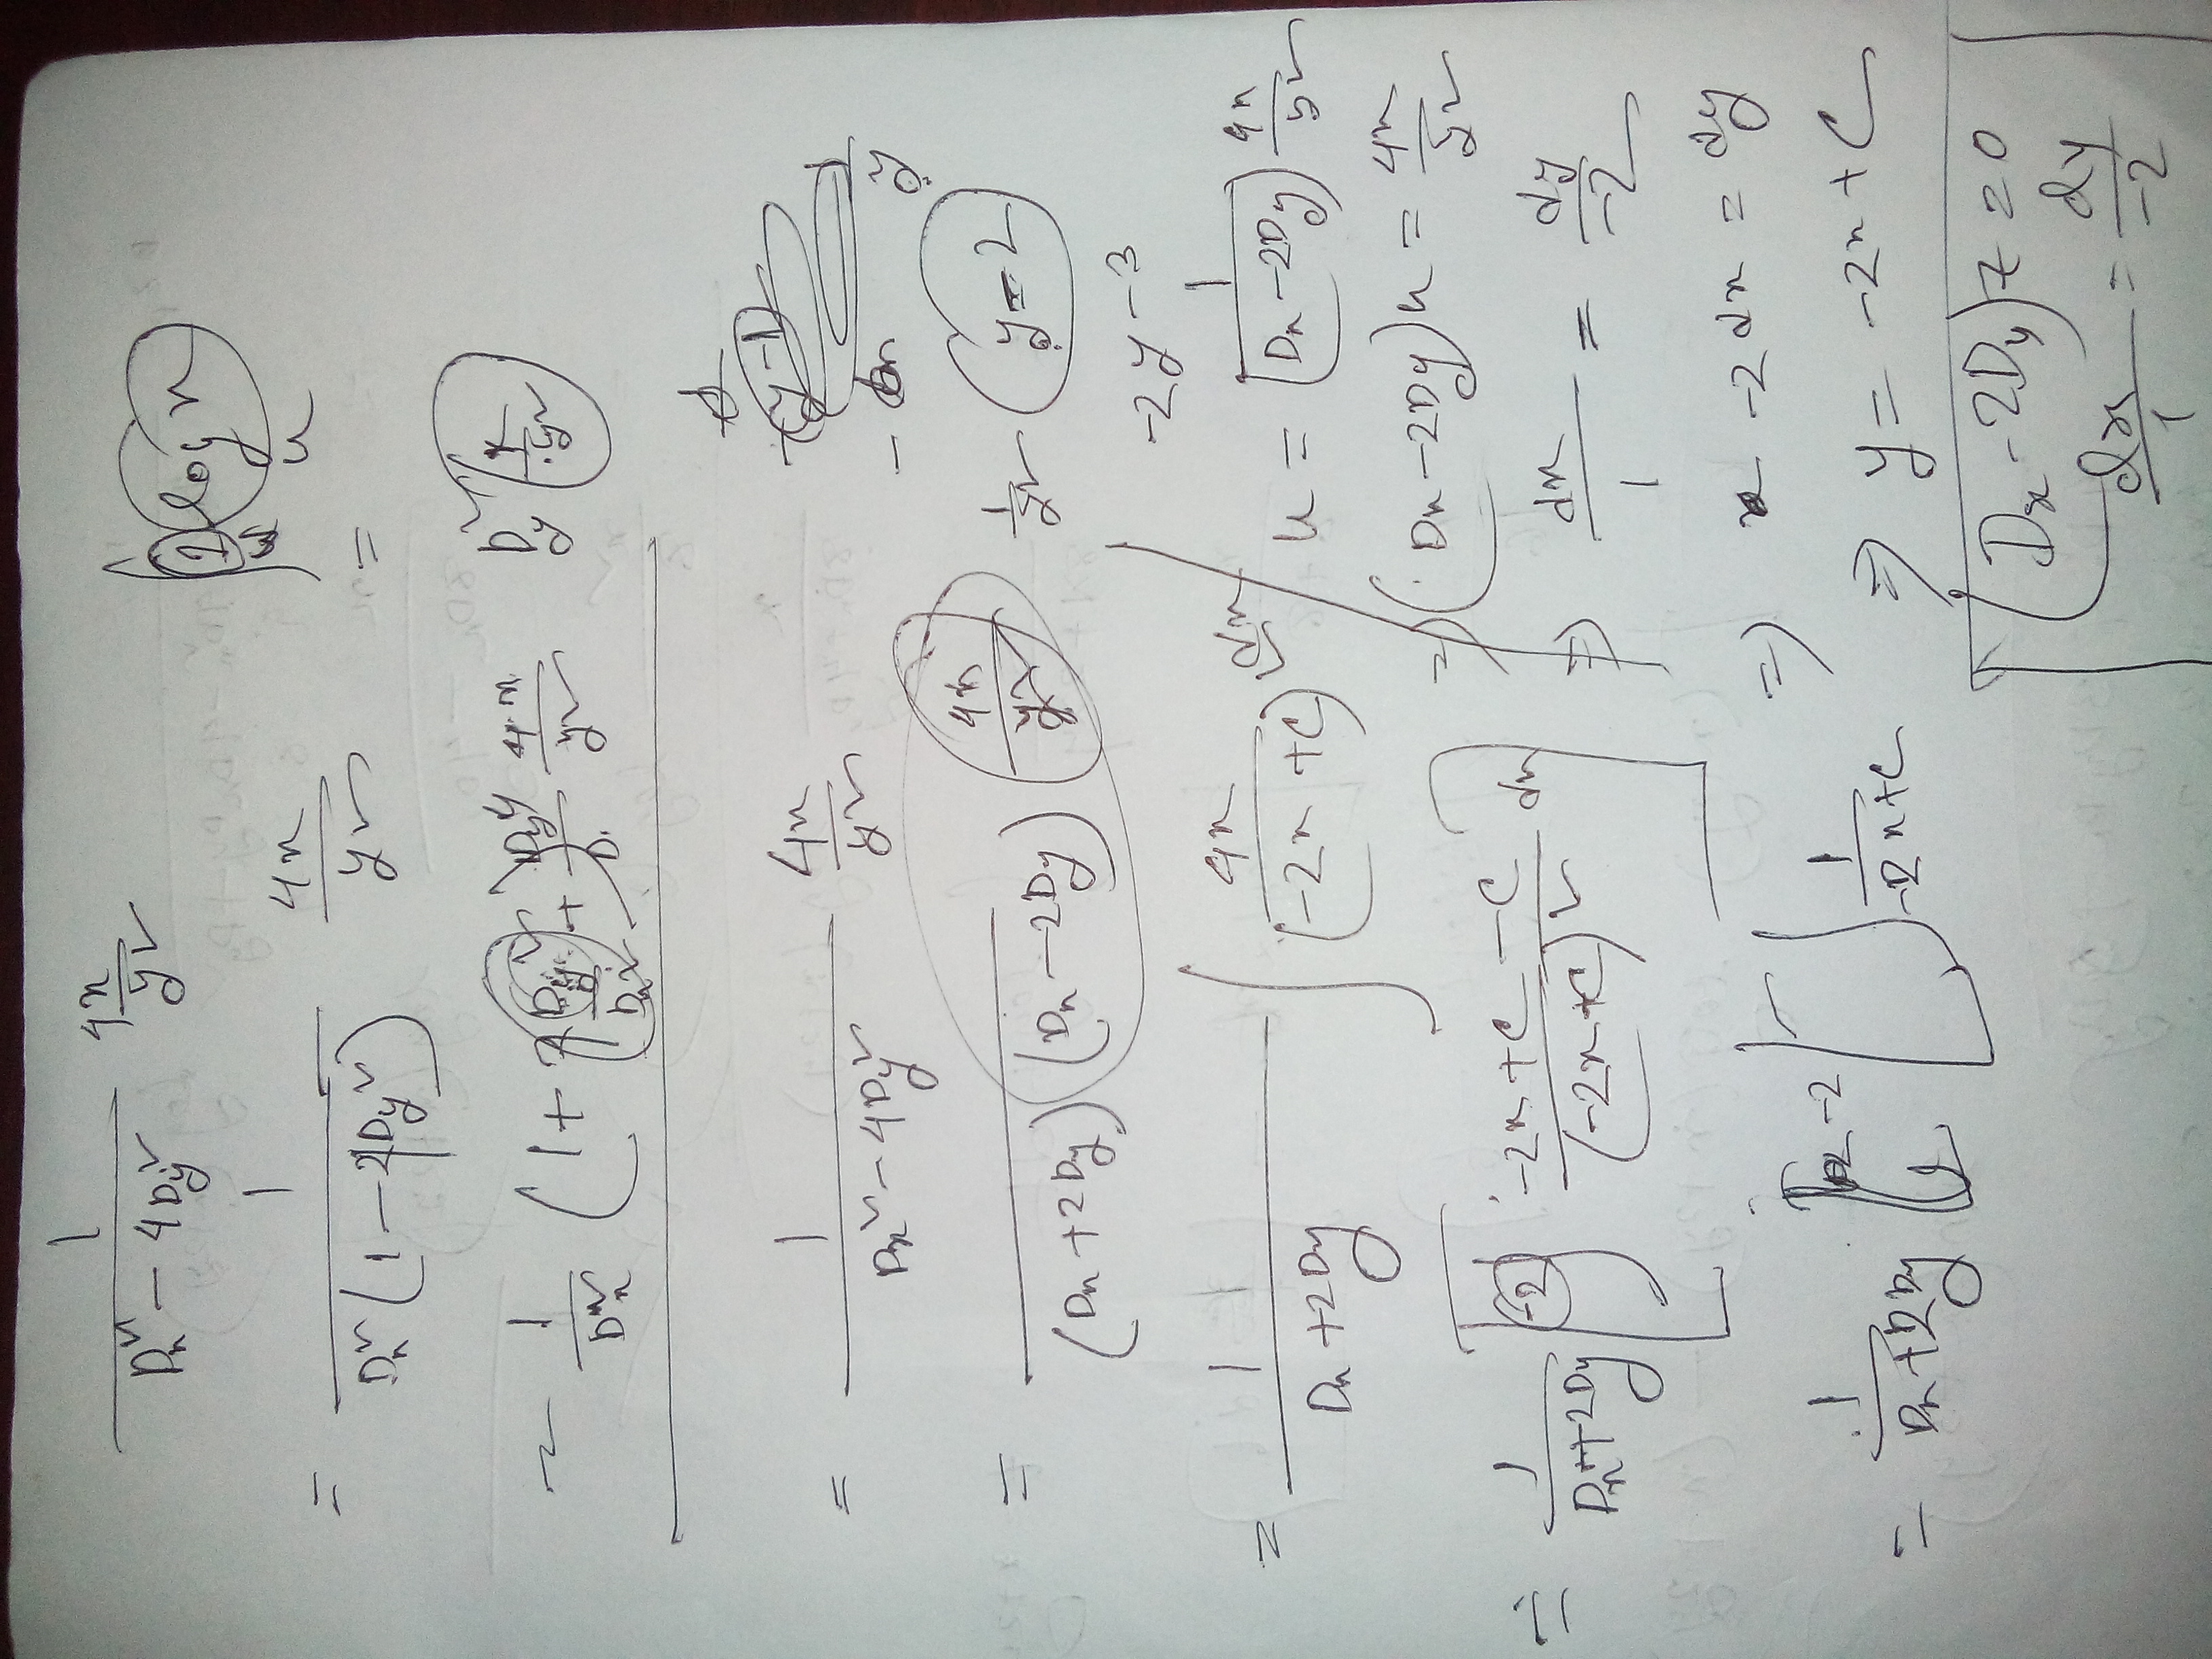 1/(Dx² - 4Dy²) 4x/y²
= 1/(Dx²(1 - 4Dy²)) 4x/y²
log x
=
1/Dx² (1 + Dy²/Dx² + ) 4x/y²
Dy² (1/y²)
= 1/(Dx² - 4Dy²) 4x/y²
= 1/((Dx + 2Dy)(Dx - 2Dy)) (4x/y²)
1/y² y-2
-2y-3
= 1/(Dx + 2Dy) ∫ 4x/(-2x + c)² dx
u = 1/(Dx - 2Dy) 4x/y²
⇒ (Dx - 2Dy)u = 4x/y²
= 1/(Dx + 2Dy) [-2 ∫ (-2x + c - c)/(-2x + c)² dx]
⇒ dx/1 = dy/-2
⇒ -2dx = dy
= 1/(Dx + 2Dy) -2 [∫ 1/(-2x + c)
⇒ y = -2x + c
(Dx - 2Dy)z = 0
dx/1 = dy/-2